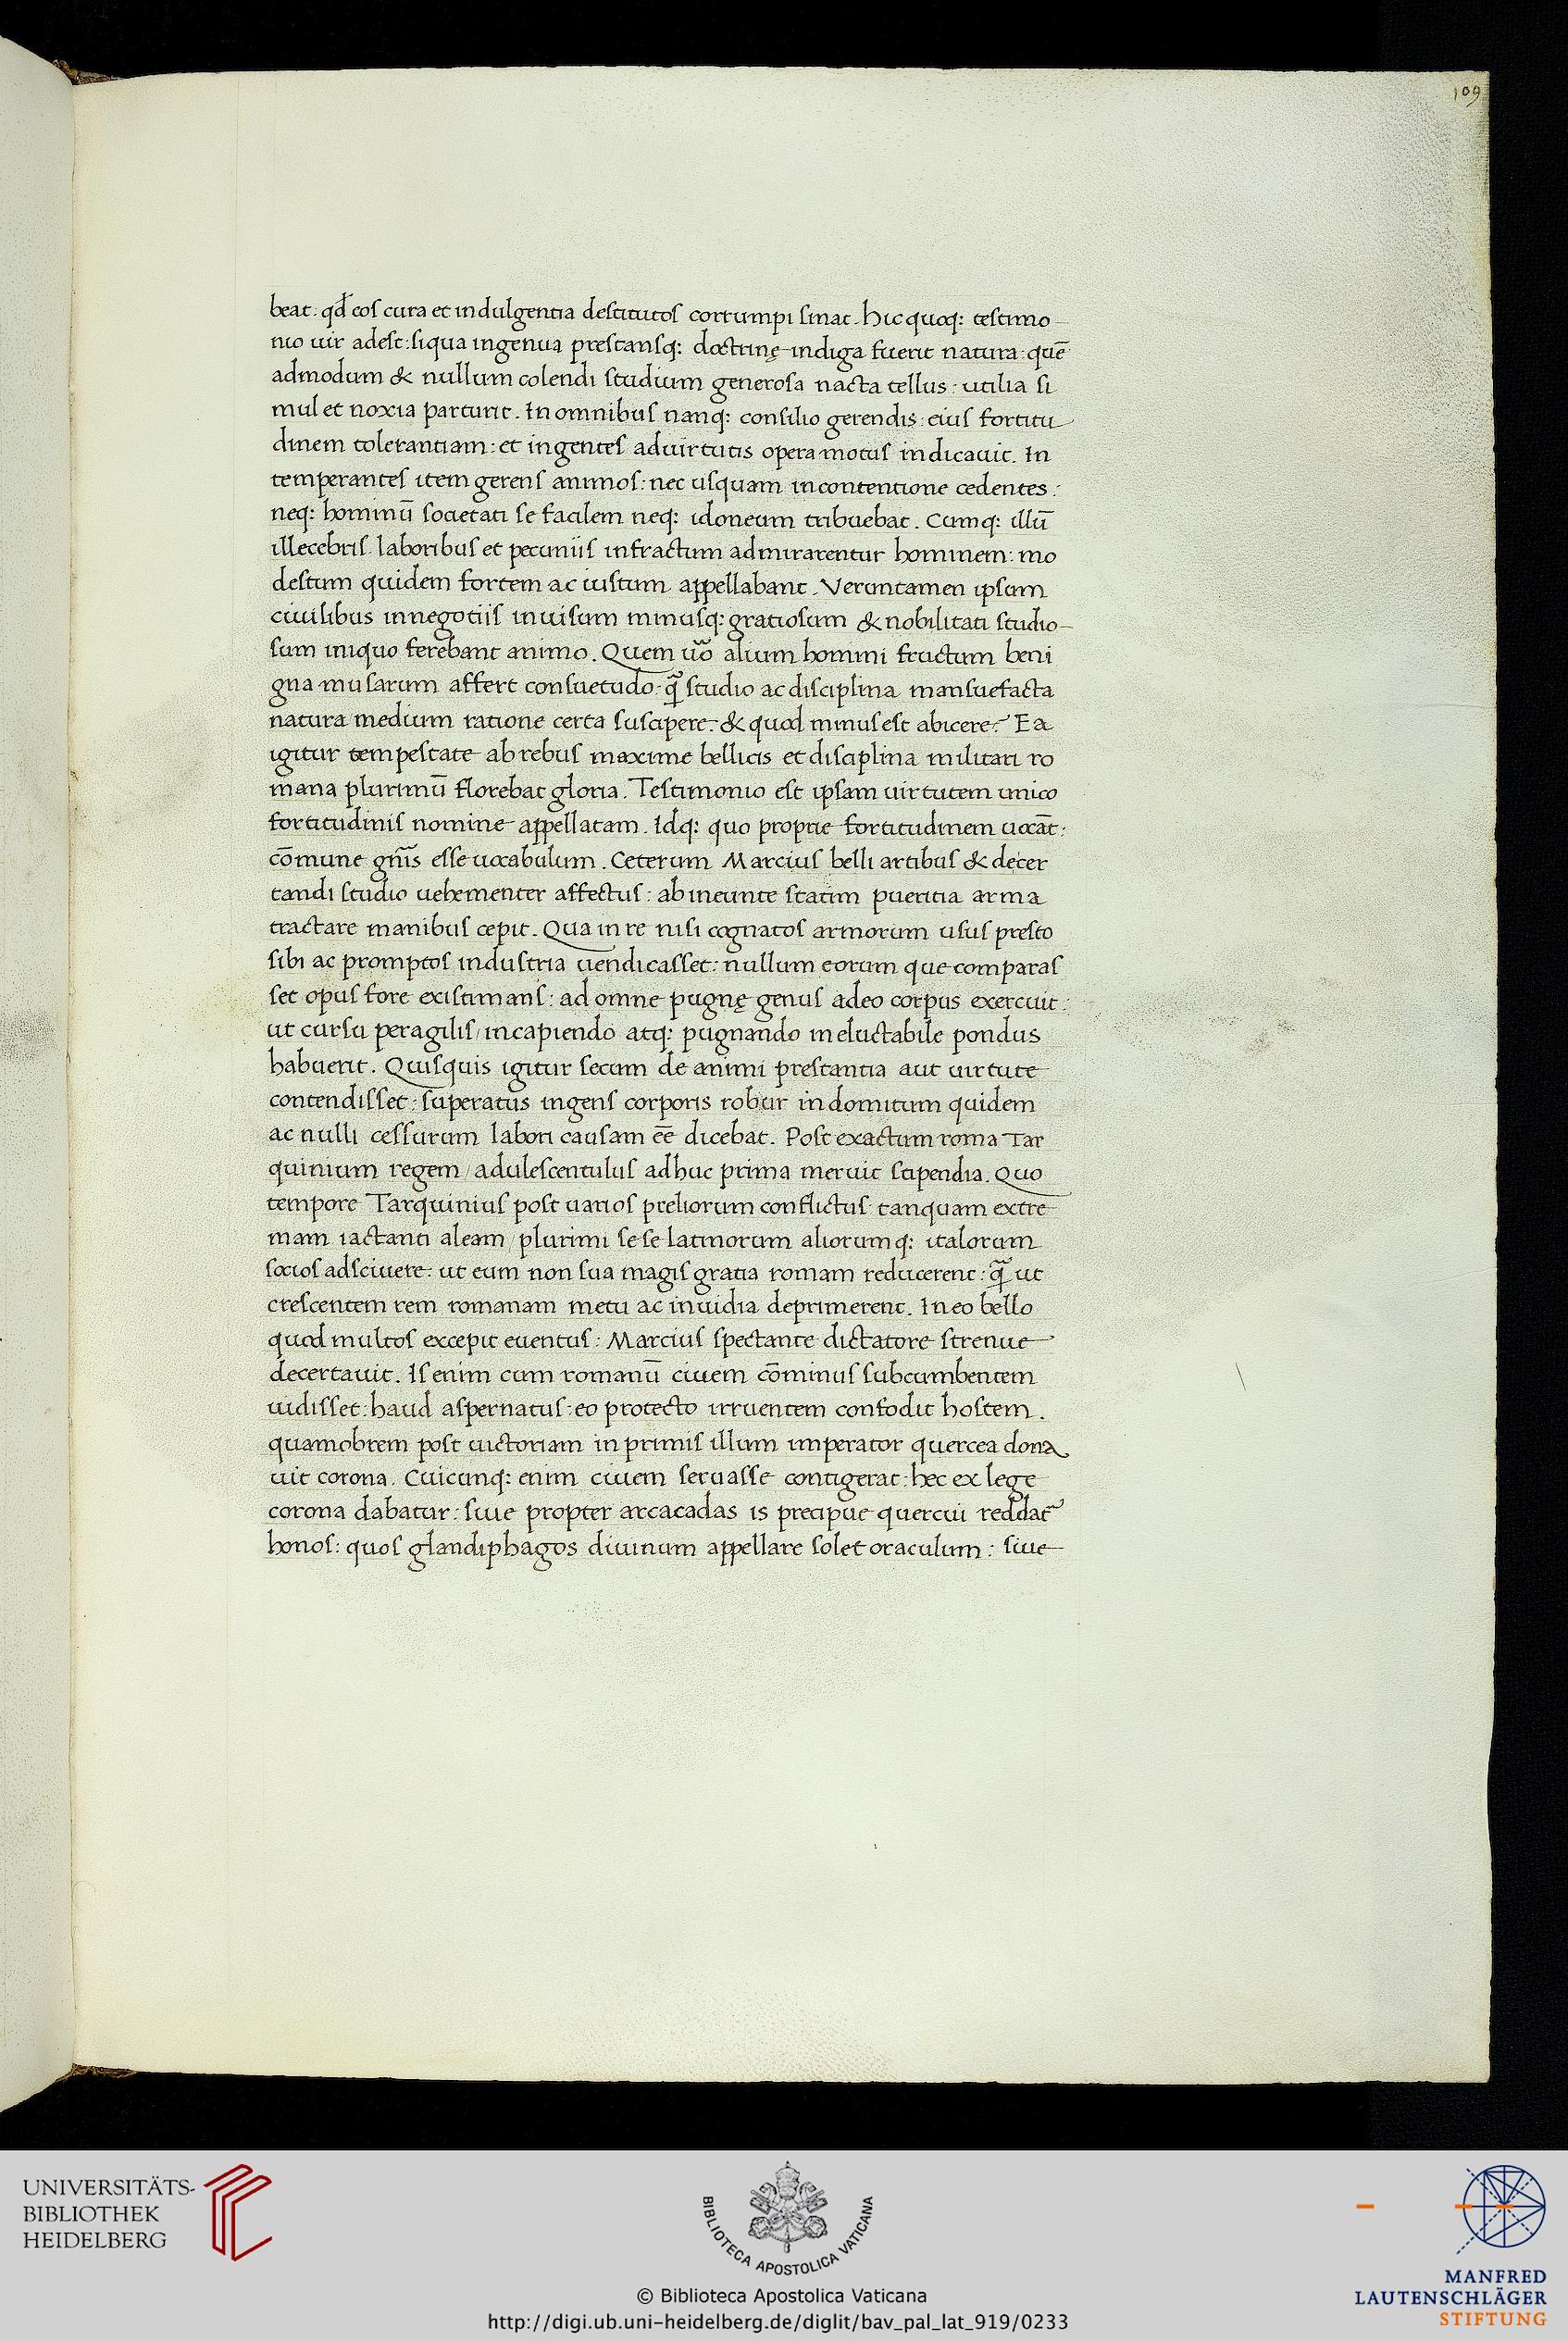 109
beat: qđ eos cura et indulgentia destitutos corrumpi sinat. hic quoq: testimo
nio uir adest: siqua ingenua prestansq: doctrinę indiga fuerit natura: quē
admodum & nullum colendi studium generosa nacta tellus: utilia si
mul et noxia parturit. In omnibus nanq: consilio gerendis: eius fortitu
dinem tolerantiam: et ingentes ad uirtutis opera motus indicauit. In
temperantes item gerens animos: nec usquam in contentione cedentes:
neq: hominū societati se facilem neq: idoneum tribuebat. Cumq: illū
illecebris laboribus et pecuniis infractum admirarentur hominem: mo
destum quidem fortem ac iustum appellabant. Veruntamen ipsum
ciuilibus in negotiis inuisum minusq: gratiosum & nobilitati studio
sum iniquo ferebant animo. Quem ũo alium homini fructum beni
gna musarum affert consuetudo: q̃ studio ac disciplina mansuefacta
natura medium ratione certa suscipere: & quod minus est abicere? Ea
igitur tempestate ab rebus maxime bellicis et disciplina militari ro
mana plurimū florebat gloria. Testimonio est ipsam uirtutem unico
fortitudinis nomine appellatam. Idq: quo proprie fortitudinem uocāt:
cōmune gñis esse uocabulum. Ceterum Marcius belli artibus & decer
tandi studio uehementer affectus: ab ineunte statim pueritia arma
tractare manibus cepit. Qua in re nisi cognatos armorum usus presto
sibi ac promptos industria uendicasset: nullum eorum que comparas
set opus fore existimans: ad omne pugnę genus adeo corpus exercuit:
ut cursu peragilis/ in capiendo atq: pugnando ineluctabile pondus
habuerit. Quisquis igitur secum de animi prestantia aut uirtute
contendisset: superatus ingens corporis robur indomitum quidem
ac nulli cessurum labori causam eē dicebat. Post exactum roma Tar
quinium regem/ adulescentulus adhuc prima meruit stipendia. Quo
tempore Tarquinius post uarios preliorum conflictus tanquam extre
mam iactanti aleam/ plurimi sese latinorum aliorumq: italorum
socios adsciuere: ut eum non sua magis gratia romam reducerent: q̃ ut
crescentem rem romanam metu ac inuidia deprimerent. In eo bello
quod multos excepit euentus: Marcius spectante dictatore strenue
decertauit. Is enim cum romanū ciuem cōminus subcumbentem
uidisset: haud aspernatus: eo protecto irruentem confodit hostem.
quamobrem post uictoriam in primis illum imperator quercea dona
uit corona. Cuicunq: enim ciuem seruasse contigerat: hec ex lege
corona dabatur: siue propter arcacadas is precipue quercui reddat̃
honos: quos glandiphagos diuinum appellare solet oraculum: siue
UNIVERSITÄTS-
BIBLIOTHEK
HEIDELBERG
BIBLIOTECA APOSTOLICA VATICANA
© Biblioteca Apostolica Vaticana
http://digi.ub.uni-heidelberg.de/diglit/bav_pal_lat_919/0233
MANFRED
LAUTENSCHLÄGER
STIFTUNG